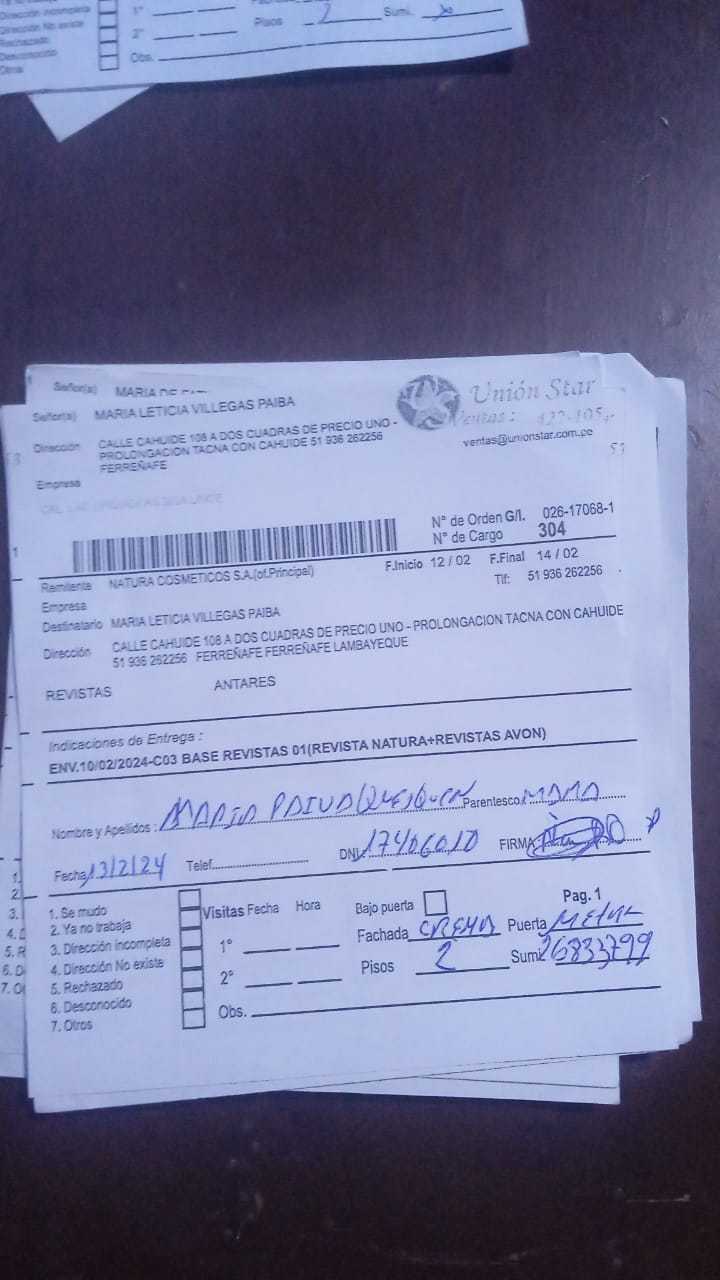 Dirección incompleta
Dirección No existe
Rechazado
Desconocido
Otros
1°
2°
Obs.
Pisos 2 Sumi.
Señor(a) MARIA DE
Señor(a) MARIA LETICIA VILLEGAS PAIBA
Dirección CALLE CAHUIDE 108 A DOS CUADRAS DE PRECIO UNO -
PROLONGACION TACNA CON CAHUIDE 51 936 262256
FERREÑAFE
Empresa
Unión Star
Ventas:
ventas@unionstar.com.pe
53
N° de Orden G/I. 026-17068-1
N° de Cargo 304
Remitente NATURA COSMETICOS S.A.(of.Principal) F.Inicio 12 / 02 F.Final 14 / 02
Empresa Tlf: 51 936 262256
Destinatario MARIA LETICIA VILLEGAS PAIBA
Dirección CALLE CAHUIDE 108 A DOS CUADRAS DE PRECIO UNO - PROLONGACION TACNA CON CAHUIDE
51 936 262256 FERREÑAFE FERREÑAFE LAMBAYEQUE
REVISTAS ANTARES
Indicaciones de Entrega :
ENV.10/02/2024-C03 BASE REVISTAS 01(REVISTA NATURA+REVISTAS AVON)
Nombre y Apellidos : MARIA PAIVA Parentesco MAMA
Fecha 13/2/24 Telef. DNI 17406010 FIRMA
1. Se mudo
2. Ya no trabaja
3. Dirección incompleta
4. Dirección No existe
5. Rechazado
6. Desconocido
7. Otros
Visitas Fecha Hora
1°
2°
Obs.
Bajo puerta Pag. 1
Fachada CREMA Puerta METAL
Pisos 2 Sumi 26833799